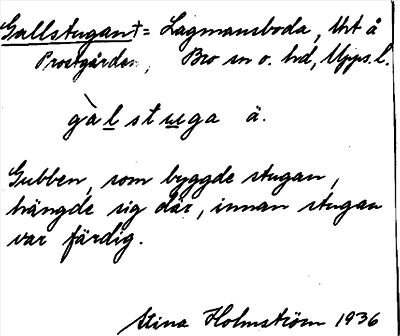 Gallstugan† = Lagmansboda, Urt å
Prostgården, Bro sn o. hd, Upps. l.
gàlstuga ä.
Gubben, som byggde stugan,
hängde sig där, innan stugan
var färdig.
Stina Holmström 1936